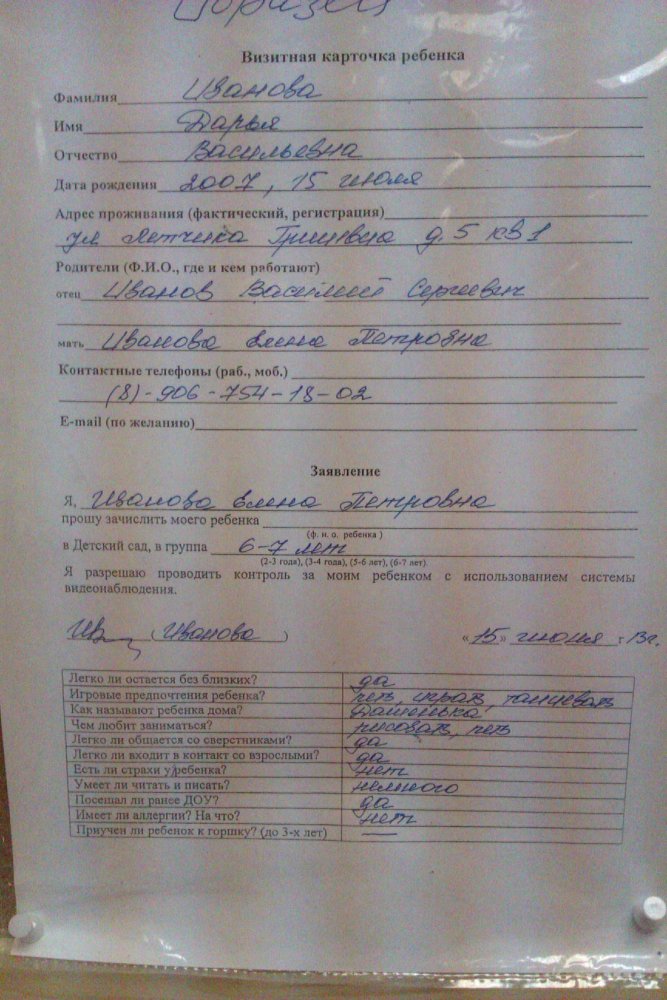 Образец
Визитная карточка ребенка
Фамилия Иванова
Имя Дарья
Отчество Васильевна
Дата рождения 2007, 15 июля
Адрес проживания (фактический, регистрация)
ул Летчика Гришина д. 5 кв 1
Родители (Ф.И.О., где и кем работают)
отец Иванов Василий Сергеевич
мать Иванова Елена Петровна
Контактные телефоны (раб., моб.)
(8)-906-754-18-02
E-mail (по желанию)
Заявление
Я, Иванова Елена Петровна
прошу зачислить моего ребенка
(ф. и. о. ребенка )
в Детский сад, в группа 6-7 лет
(2-3 года), (3-4 года), (5-6 лет), (6-7 лет).
Я разрешаю проводить контроль за моим ребенком с использованием системы
видеонаблюдения.
(Иванова) «15» июня 13г.
Легко ли остается без близких? да
Игровые предпочтения ребенка? петь, играть, танцевать
Как называют ребенка дома? Дашенька
Чем любит заниматься? рисовать, петь
Легко ли общается со сверстниками? да
Легко ли входит в контакт со взрослыми? да
Есть ли страхи у ребенка? нет
Умеет ли читать и писать? немного
Посещал ли ранее ДОУ? да
Имеет ли аллергии? На что? нет
Приучен ли ребенок к горшку? (до 3-х лет) —